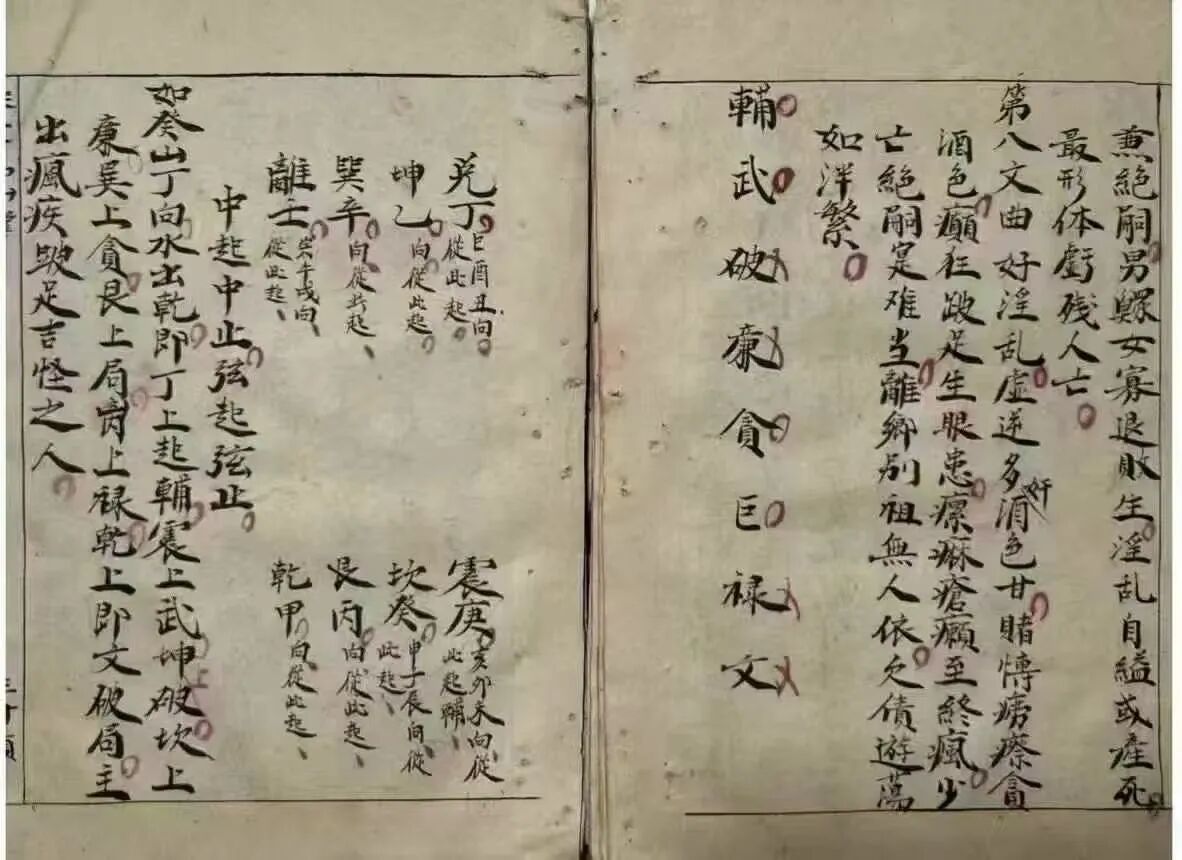 兼絶嗣男鰥女寡退敗生淫乱自縊或産死
最形体虧残人亡
第八文曲好淫乱虚逆多奸酒色甘賭慱痨瘵貪
酒色癲狂跛足生眼患瘰痳瘡癩至終瘋少
亡絶嗣寔难当離鄉别祖無人依欠債遊蕩
如洋繁
輔武破廉貪巨禄文
兌丁巳酉丑向從此起
震庚亥卯未向從此起輔
坤乙向從此起
坎癸申子辰向從此起
巽辛向從此起
艮丙向從此起
離士寅午戌向從此起
乾甲向從此起
中起中止弦起弦止
如癸山丁向水出乾即丁上起輔震上武坤上破坎上
廉巽上貪艮上局离上禄乾上即文破局主
出瘋疾跛足吉怪之人